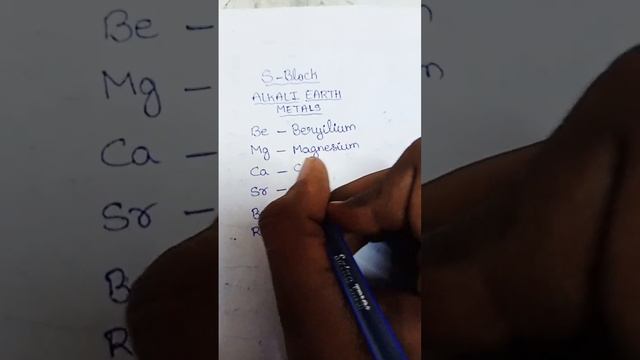 S-Block
ALKALI EARTH
METALS
Be - Beryilium
Mg - Magnesium
Ca - C
Sr -
B
R